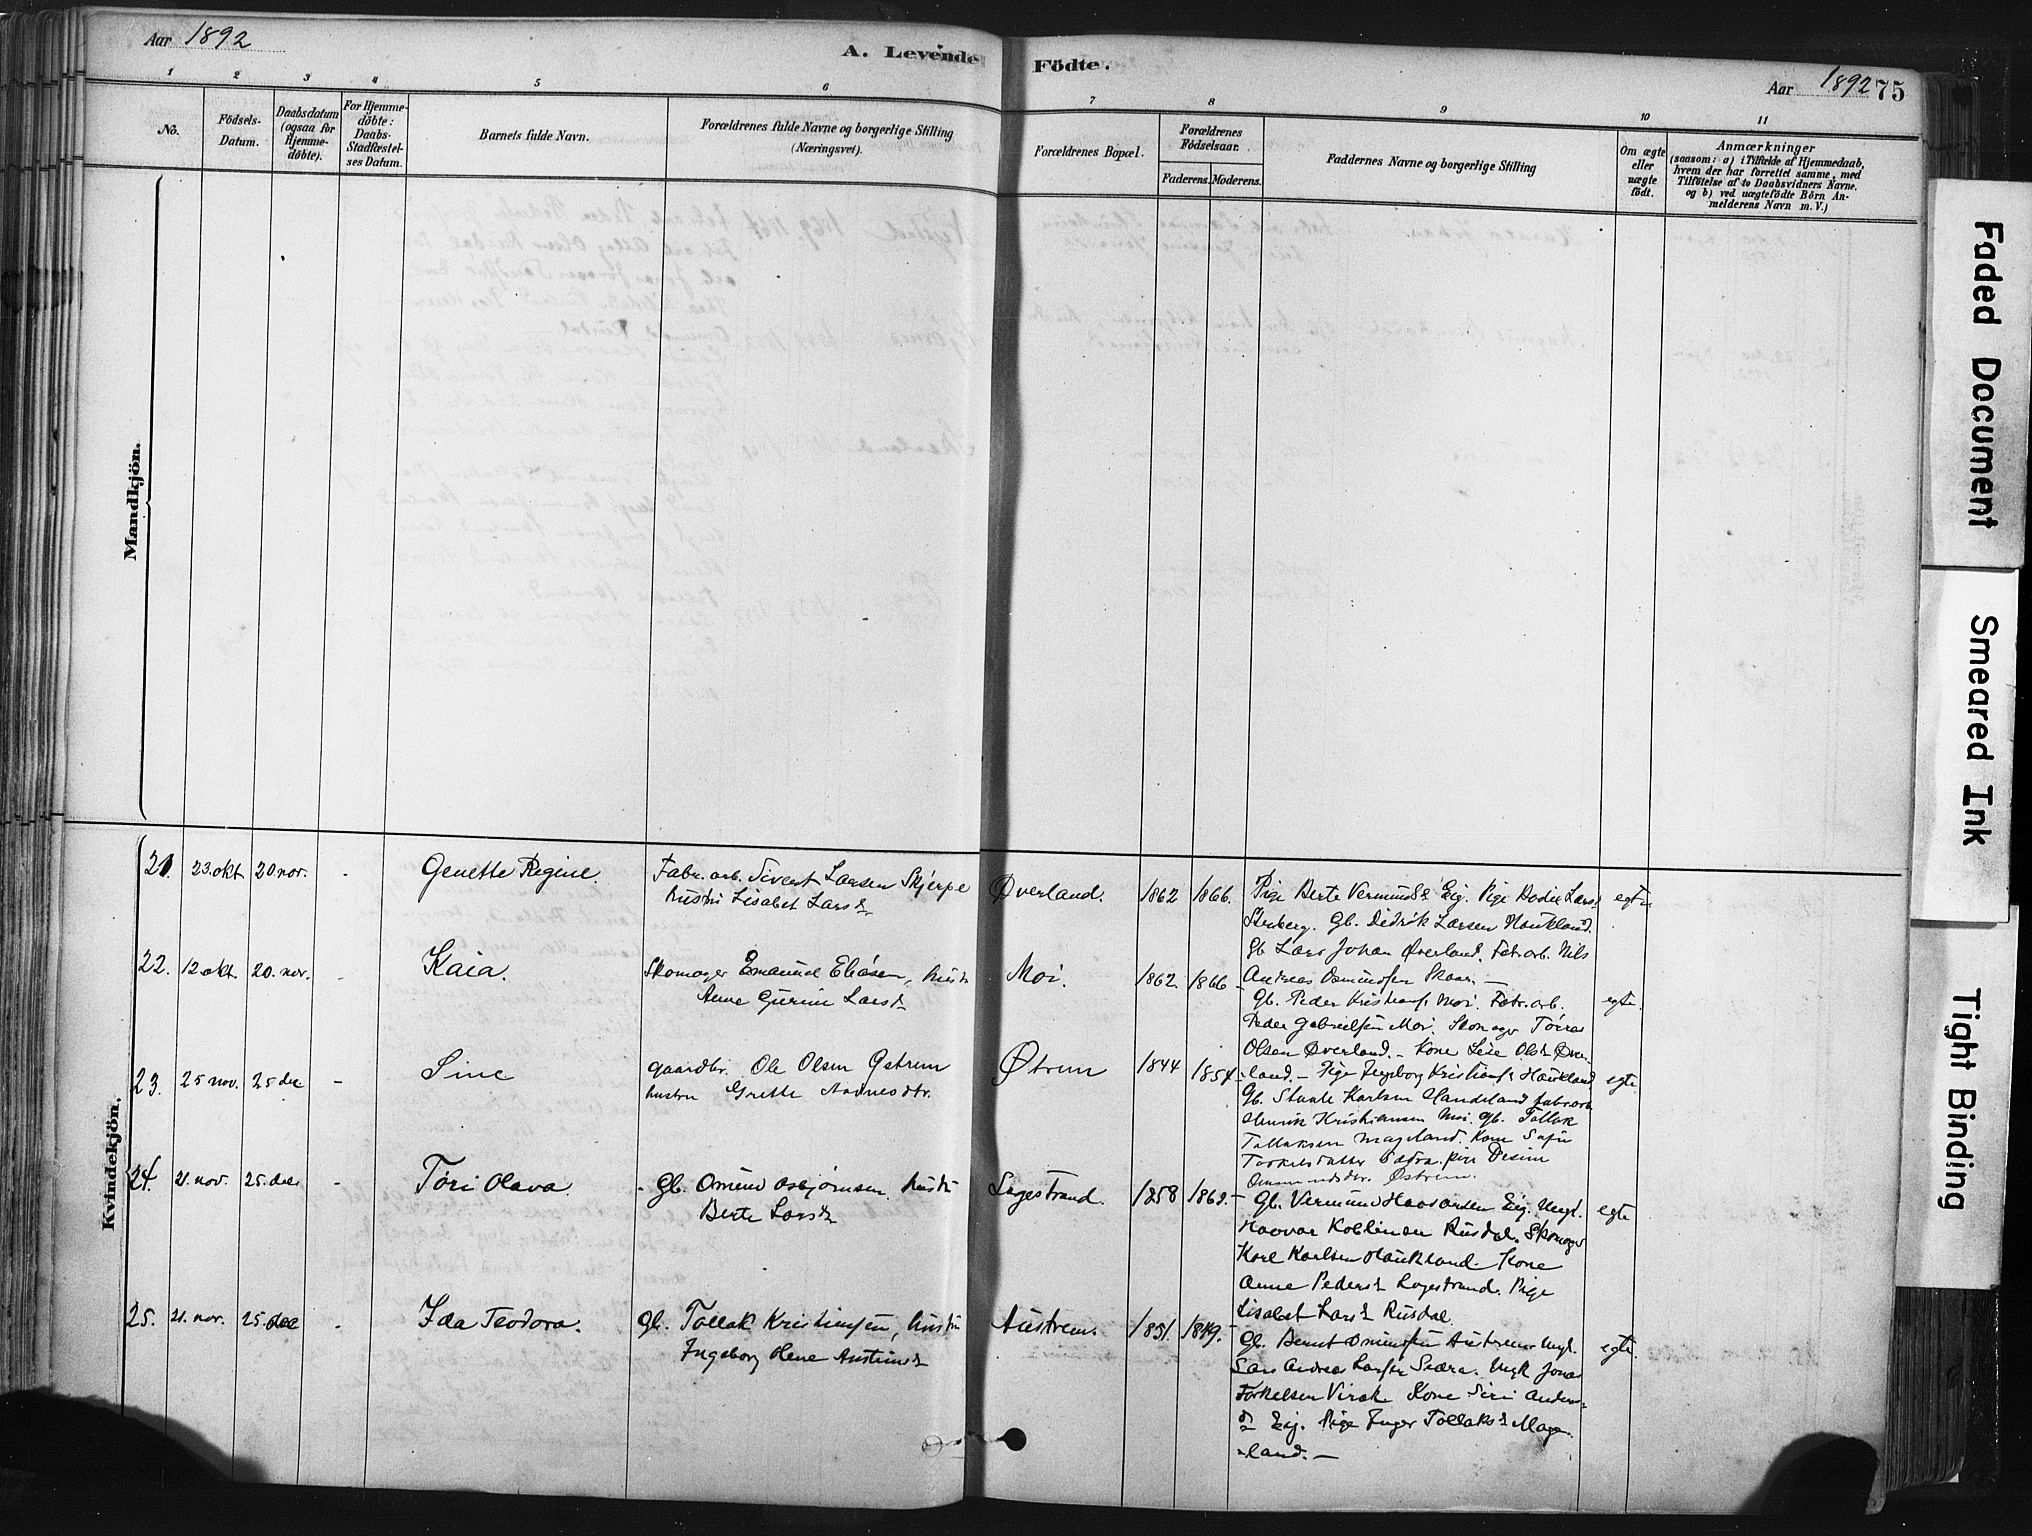 Aar 1892
A. Levende Födte.
Aar 1892 75
1 2 3 4 5 6 7 8 9 10 11
No.
Födsels-
Datum.
Daabsdatum
(ogsaa for
Hjemme-
döbte).
For Hjemme-
döbte:
Daabs-
Stadfæstel-
ses Datum.
Barnets fulde Navn.
Forældrenes fulde Navne og borgerlige Stilling
(Næringsvei).
Forældrenes Bopæl.
Forældrenes
Födselsaar.
Faderens. Moderens.
Faddernes Navne og borgerlige Stilling
Om ægte
eller
uægte
födt.
Anmærkninger
(saasom: a) i Tilfælde af Hjemmedaab,
hvem der har forrettet samme, med
Tilföielse af to Daabsvidners Navne.
og b) ved uægtefödte Börn An-
melderens Navn m. V.)
Mandkjön.
Kvindekjön.
21. 23. okt 20 nov. - Genette Regine. Fabr. arb. Sivert Larsen Skjerpe
hustru Lisabet Larsd.
Øverland. 1862 1866.
Pige Berte Vermunds Eig. Pige Bodil Lars
Stenberg. Gb. Didrik Larsen Haukland.
Gb Lars Johan Øverland. Fabr. arb. Nils
Andreas Osmundsen Skaar. -
egte
22. 12 okt. 20. nov. - Kaia. Skomager Emanuel Eliasen, hustr
Anne Gurine Larsd
Moi. 1862 1866 -
Gb. Peder Kristians. Moi. Fabr. arb.
Peder Gabrielsen Moi. Skomager Tørres
Olsen Øverland. - Kone Lise Olsd Øver-
land. - Pige Ingeborg Kristians Haukland
egte.
23. 25 nov. 25 dec - Sine Gaardbr. Ole Olsen Østrem
hustru Grette Aadnesdtr.
Østrem 1844 1854 -
Gb. Karlsen Handeland fabr. arb.
Henrik Kristiansen Moi. Gb. Tollak
Tollaksen Mageland. Kone
Torkelsdatter pige
Omundsdtr. Østrem.
egte
24. 21. nov. 25. dec - Tøri Olava. - Gb. Omund Asbjørnsen, hustru
Berte Larsd
Legestrand. 1858 1862. -
Gb. Vermund Eig. Ungk.
Haavar Rusdal. Skomager
Karl Karlsen Haukland. Kone
Anne Pedersd Legestrand. Pige
Lisabet Larsd Rusdal.
egte
25. 21. nov. 25. dec - Ida Teodora. Gb. Tollak Kristiansen, hustru
Ingeborg Austrem. 1851. 1849. -
Gb. Bernt Omundsen Austrem Ungk.
Lars Andreas Larsen Ungk Jonas
Torkelsen Virak Kone Siri Anders-
d Eig. Pige Inger Tollaksd Mage-
land. -
egte.
Faded Document
Smeared Ink
Tight Binding